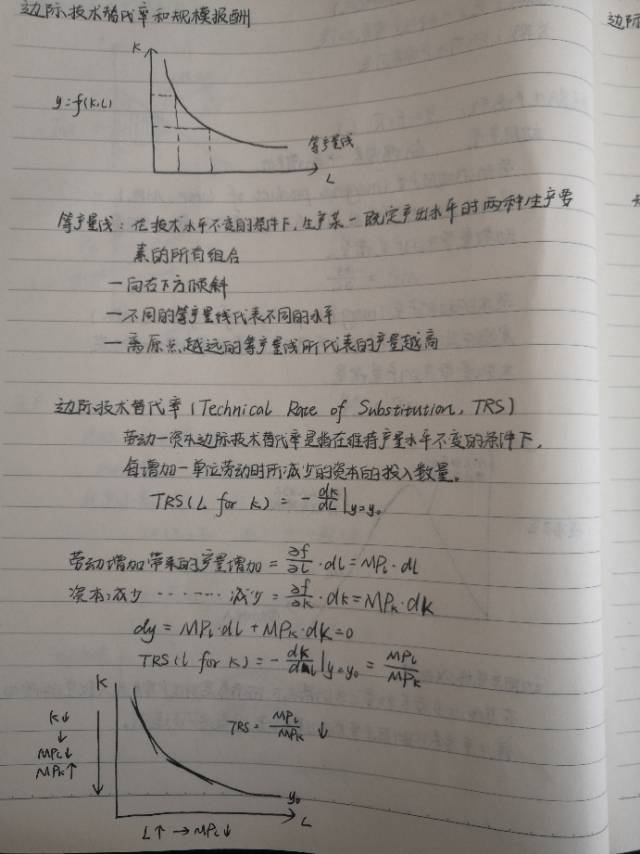 边际技术替代率和规模报酬
边际
K
y=f(K,L)
等产量线
L
等产量线：在技术水平不变的条件下，生产某一既定产出水平时两种生产要
素的所有组合
—向右下方倾斜
—不同的等产量线代表不同的水平
—离原点越远的等产量线所代表的产量越高
边际技术替代率（Technical Rate of Substitution, TRS）
劳动—资本边际技术替代率是指在维持产量水平不变的条件下，
每增加一单位劳动时所减少的资本的投入数量。
TRS(L for K) = -dK/dL|y=y₀
劳动增加带来的产量增加 = ∂f/∂L · dL = MP_L · dL
资本减少 ········ 减少 = ∂f/∂K · dK = MP_K · dK
dy = MP_L · dL + MP_K · dK = 0
TRS(L for K) = -dK/dL|y=y₀ = MP_L/MP_K
K
K↓
↓
MP_L↓
MP_K↑
TRS = MP_L/MP_K ↓
y₀
L
L↑ → MP_L↓